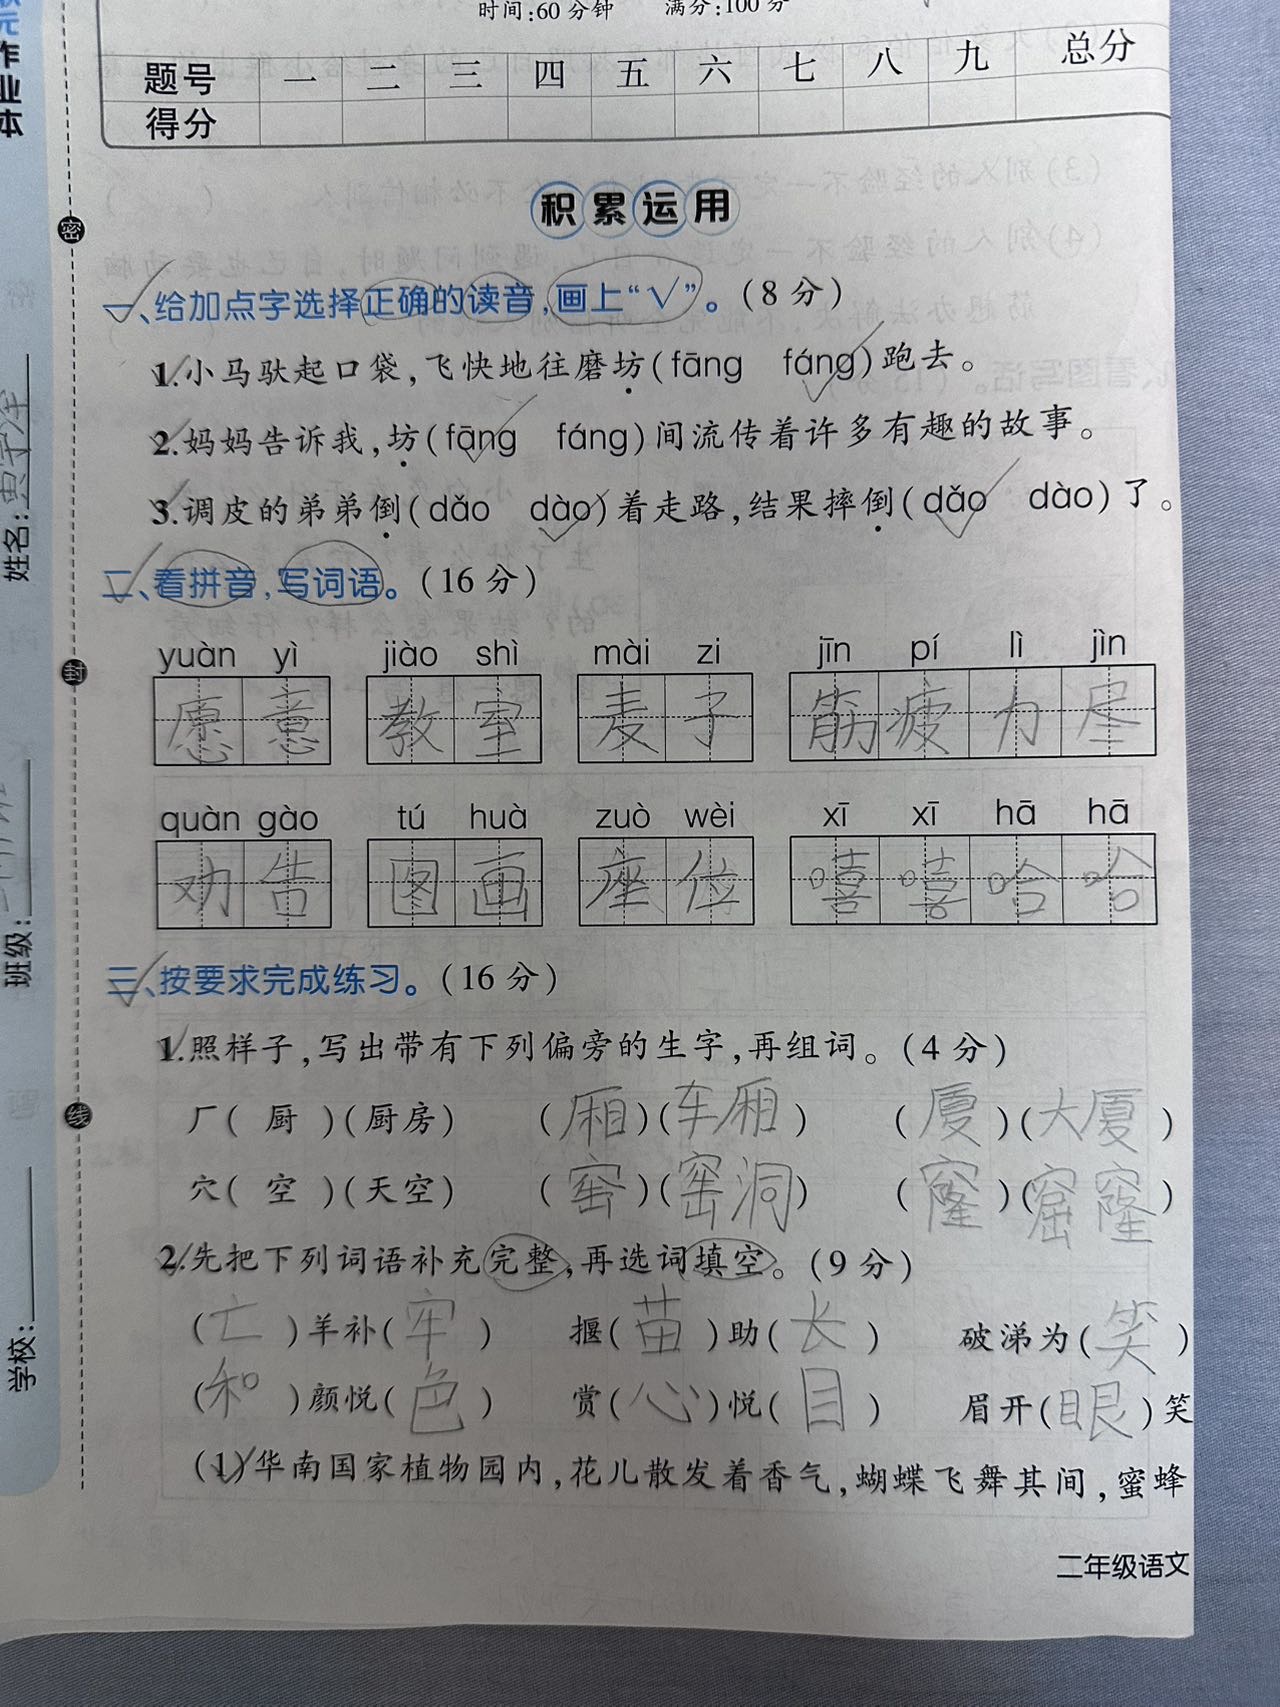 时间:60分钟 满分:100分
题号 一 二 三 四 五 六 七 八 九 总分
得分
积累运用
一、给加点字选择正确的读音,画上“√”。(8分)
1.小马驮起口袋,飞快地往磨坊(fāng fáng)跑去。
2.妈妈告诉我,坊(fāng fáng)间流传着许多有趣的故事。
3.调皮的弟弟倒(dǎo dào)着走路,结果摔倒(dǎo dào)了。
二、看拼音,写词语。(16分)
yuàn yì jiào shì mài zi jīn pí lì jìn
愿意 教室 麦子 筋疲力尽
quàn gào tú huà zuò wèi xī xī hā hā
劝告 图画 座位 嘻嘻哈哈
三、按要求完成练习。(16分)
1.照样子,写出带有下列偏旁的生字,再组词。(4分)
厂(厨)(厨房) (厢)(车厢) (厦)(大厦)
穴(空)(天空) (窑)(窑洞) (窿)(窟窿)
2.先把下列词语补充完整,再选词填空。(9分)
(亡)羊补(牢) 揠(苗)助(长) 破涕为(笑)
(和)颜悦(色) 赏(心)悦(目) 眉开(眼)笑
(1)华南国家植物园内,花儿散发着香气,蝴蝶飞舞其间,蜜蜂
二年级语文
作业本
密
封
线
姓名:
班级:
学校: